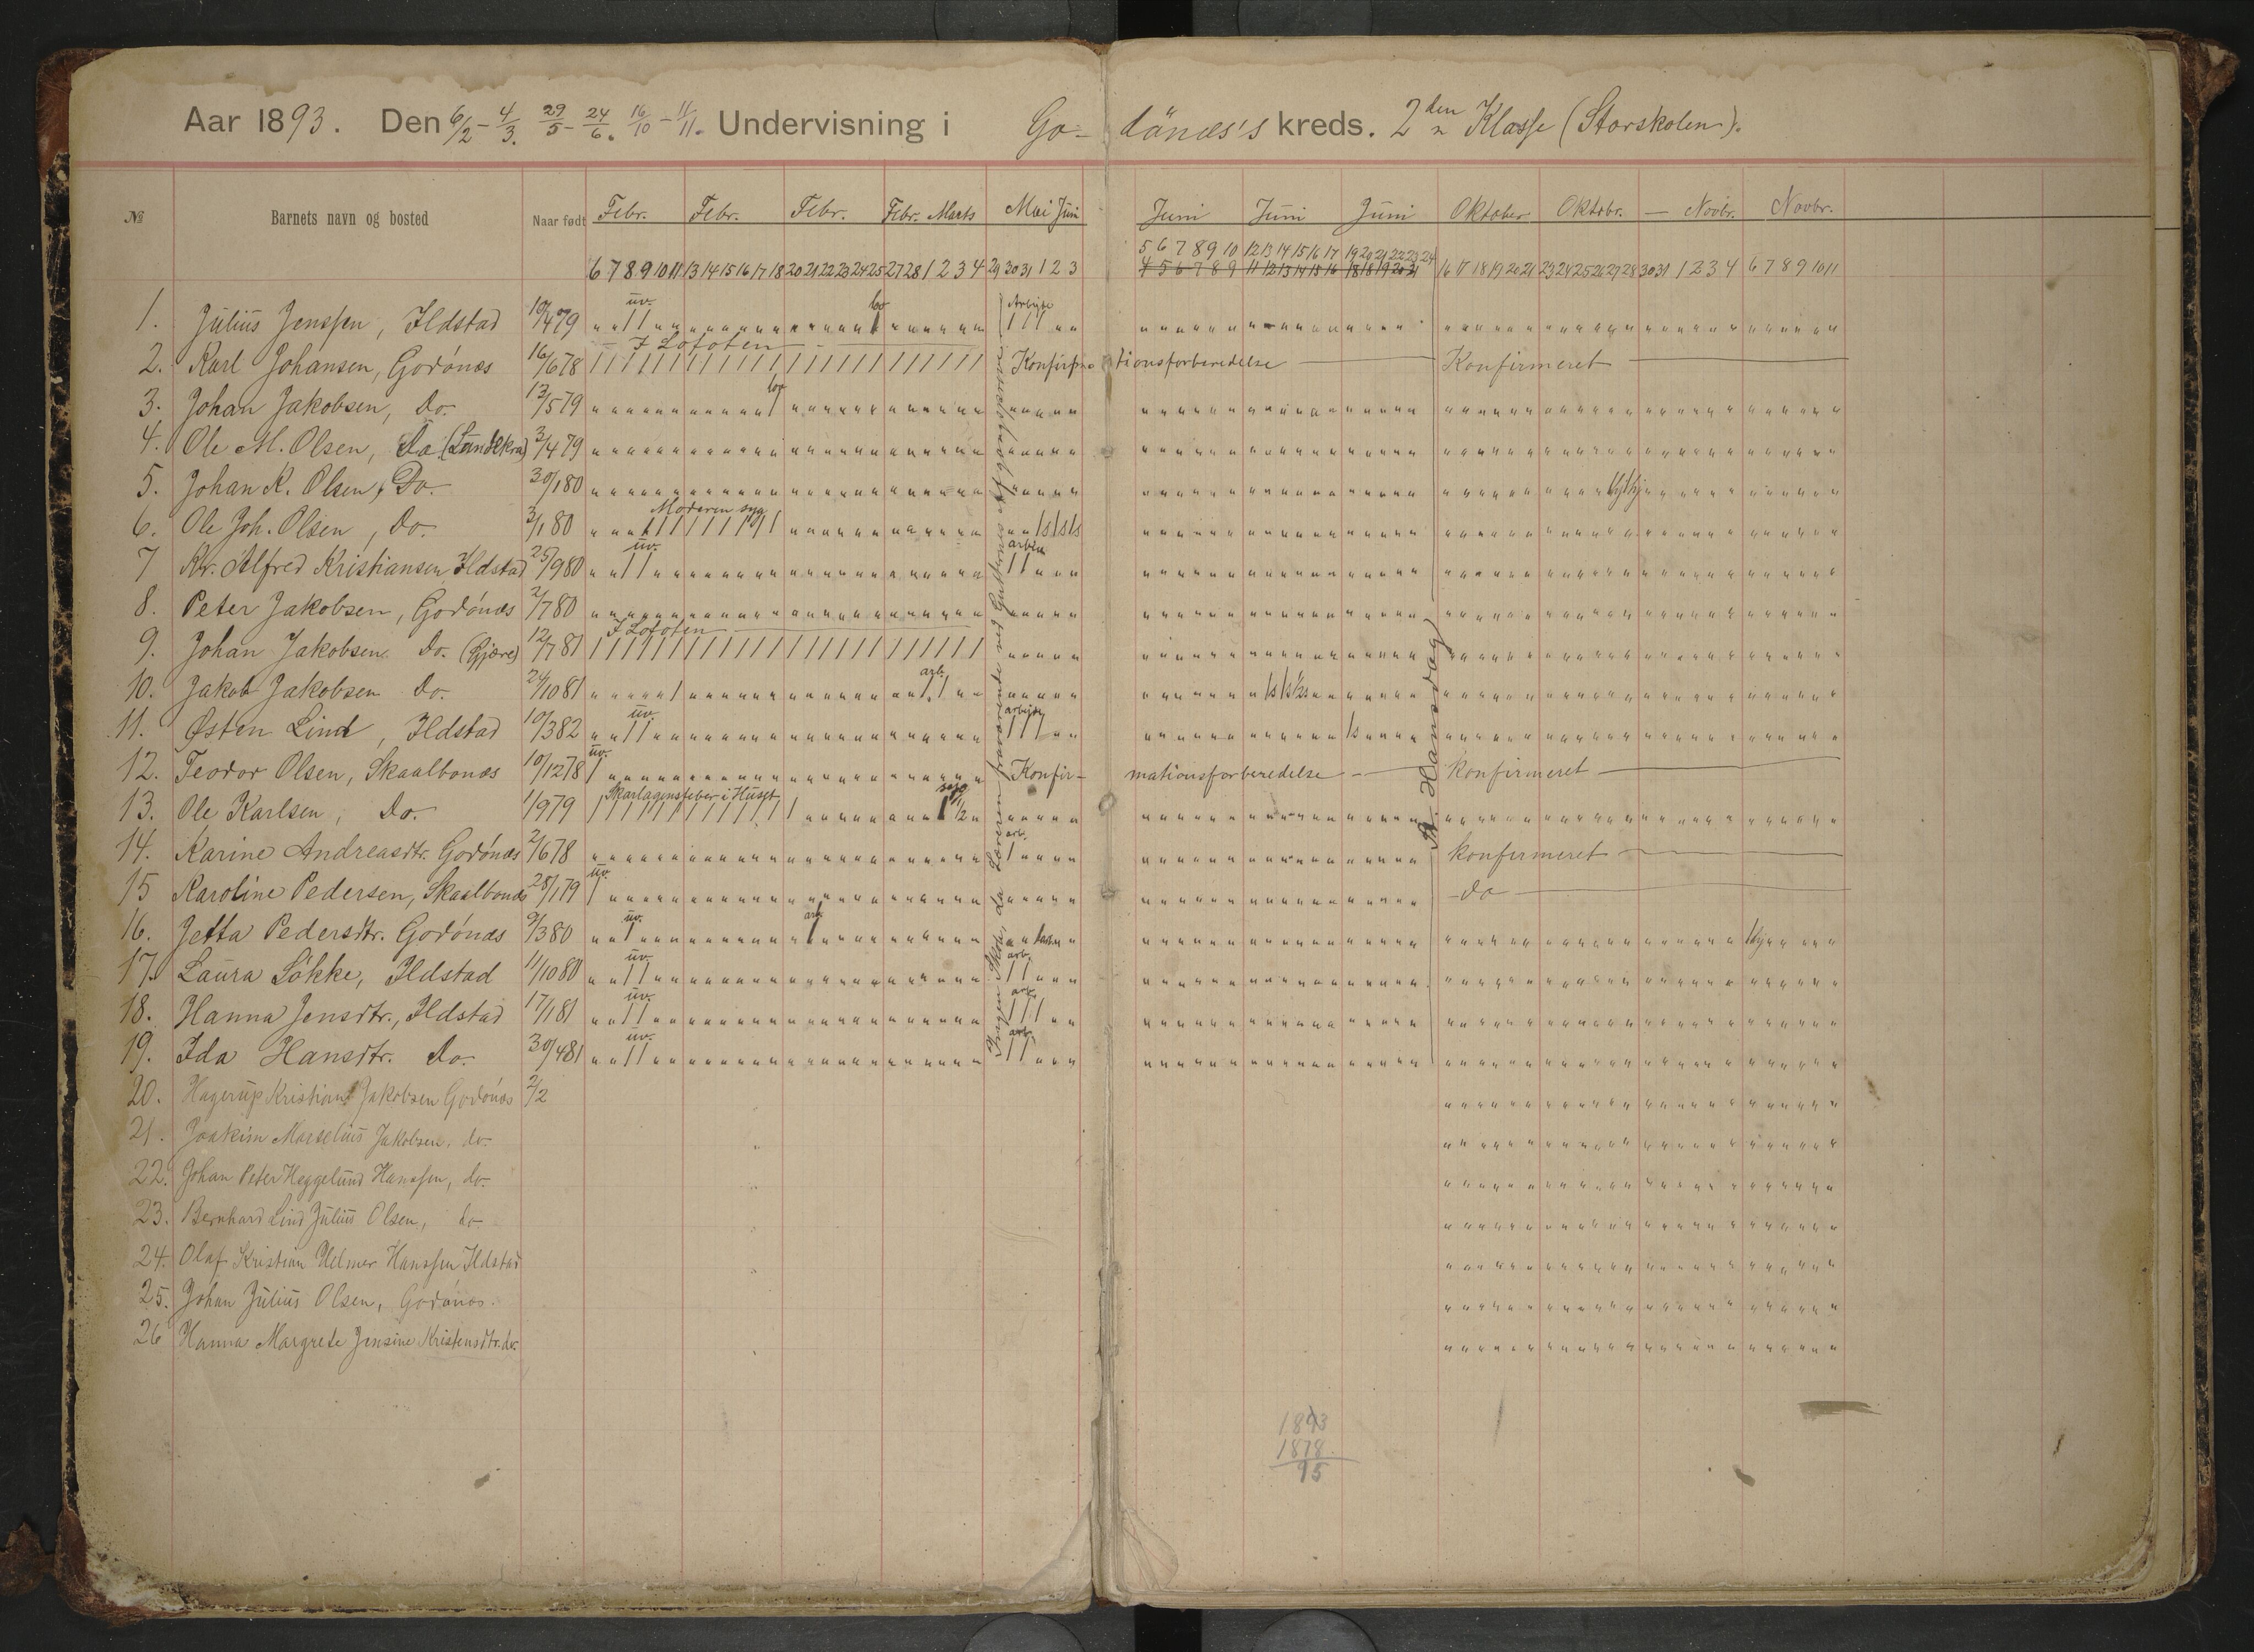 Aar 1893. Den 6/2 - 4/3. 29/5 - 24/6. 16/10 - 11/11. Undervisning i Go- dönæs's kreds. 2den Klasse (Storskolen).
№ Barnets navn og bosted Naar født Febr. Febr. Febr. Febr. Marts Mai Juni Juni Juni Juni Oktober Oktobr. — Novbr. Novbr.
5 6 7 8 9 10 12 13 14 15 16 17 19 20 21 22 23 24
6 7 8 9 10 11 13 14 15 16 17 18 20 21 22 23 24 25 27 28 1 2 3 4 29 30 31 1 2 3 4 5 6 7 8 9 11 12 13 14 15 16 18 18 19 20 21 16 17 18 19 20 21 23 24 25 26 27 28 30 31 1 2 3 4 6 7 8 9 10 11
uv. Arbejde
1. Julius Jenssen, Ildstad 10/4 79
I Lofoten
2. Karl Johansen, Godönæs 16/6 78 Konfirmationsforberedelse Konfirmeret
3. Johan Jakobsen, Do. 12/5 79
4. Ole M. Olsen, Do 3/4 79
5. Johan K. Olsen, Do. 30/1 80
Moderen syg
6. Ole Joh. Olsen, Do. 3/1 80
uv.
7 Kr. Alfred Kristiansen, Ildstad 25/9 80
8. Peter Jakobsen, Godönæs 2/7 80
I Lofoten
9. Johan Jakobsen Do. (Gjære) 12/7 81
arb.
10. Jakob Jakobsen Do. 24/10 81
uv.
11. Østen Lind, Ildstad 10/3 82
uv.
12. Teodor Olsen, Skaalbonæs 10/12 78 Konfir- mationsforberedelse - konfirmeret
Skarlagensfeber i Huset
13. Ole Karlsen, Do. 1/9 79
arb.
14. Karine Andreasdtr. Godönæs 2/6 78 konfirmeret
uv.
15 Karoline Pedersen, Skaalbonæs 28/1 79 -do
uv. arb.
16. Jetta Pedersdtr. Godönæs 9/3 80
uv. arb.
17. Laura Løkke, Ildstad 11/10 80
uv. arb.
18. Hanna Jensdtr., Ildstad 17/1 81
uv. arb.
19. Ida Hansdtr. Do. 30/4 81
20. Hagerup Kristian Jakobsen Godönæs 2/2
21. Joakim Marselius Jakobsen. do.
22. Johan Peter Heggelund Hanssen, do.
23. Bernhard Lind Julius Olsen, do
24. Olaf Kristian Hilmer Hanssen Ildstad
25. Johan Julius Olsen, Godönæs.
26 Hanna Margrete Jensine Kristensdtr. do.
Ingen Skole, da Læreren fraværende ved
St. Hansdag
1893
1878
95